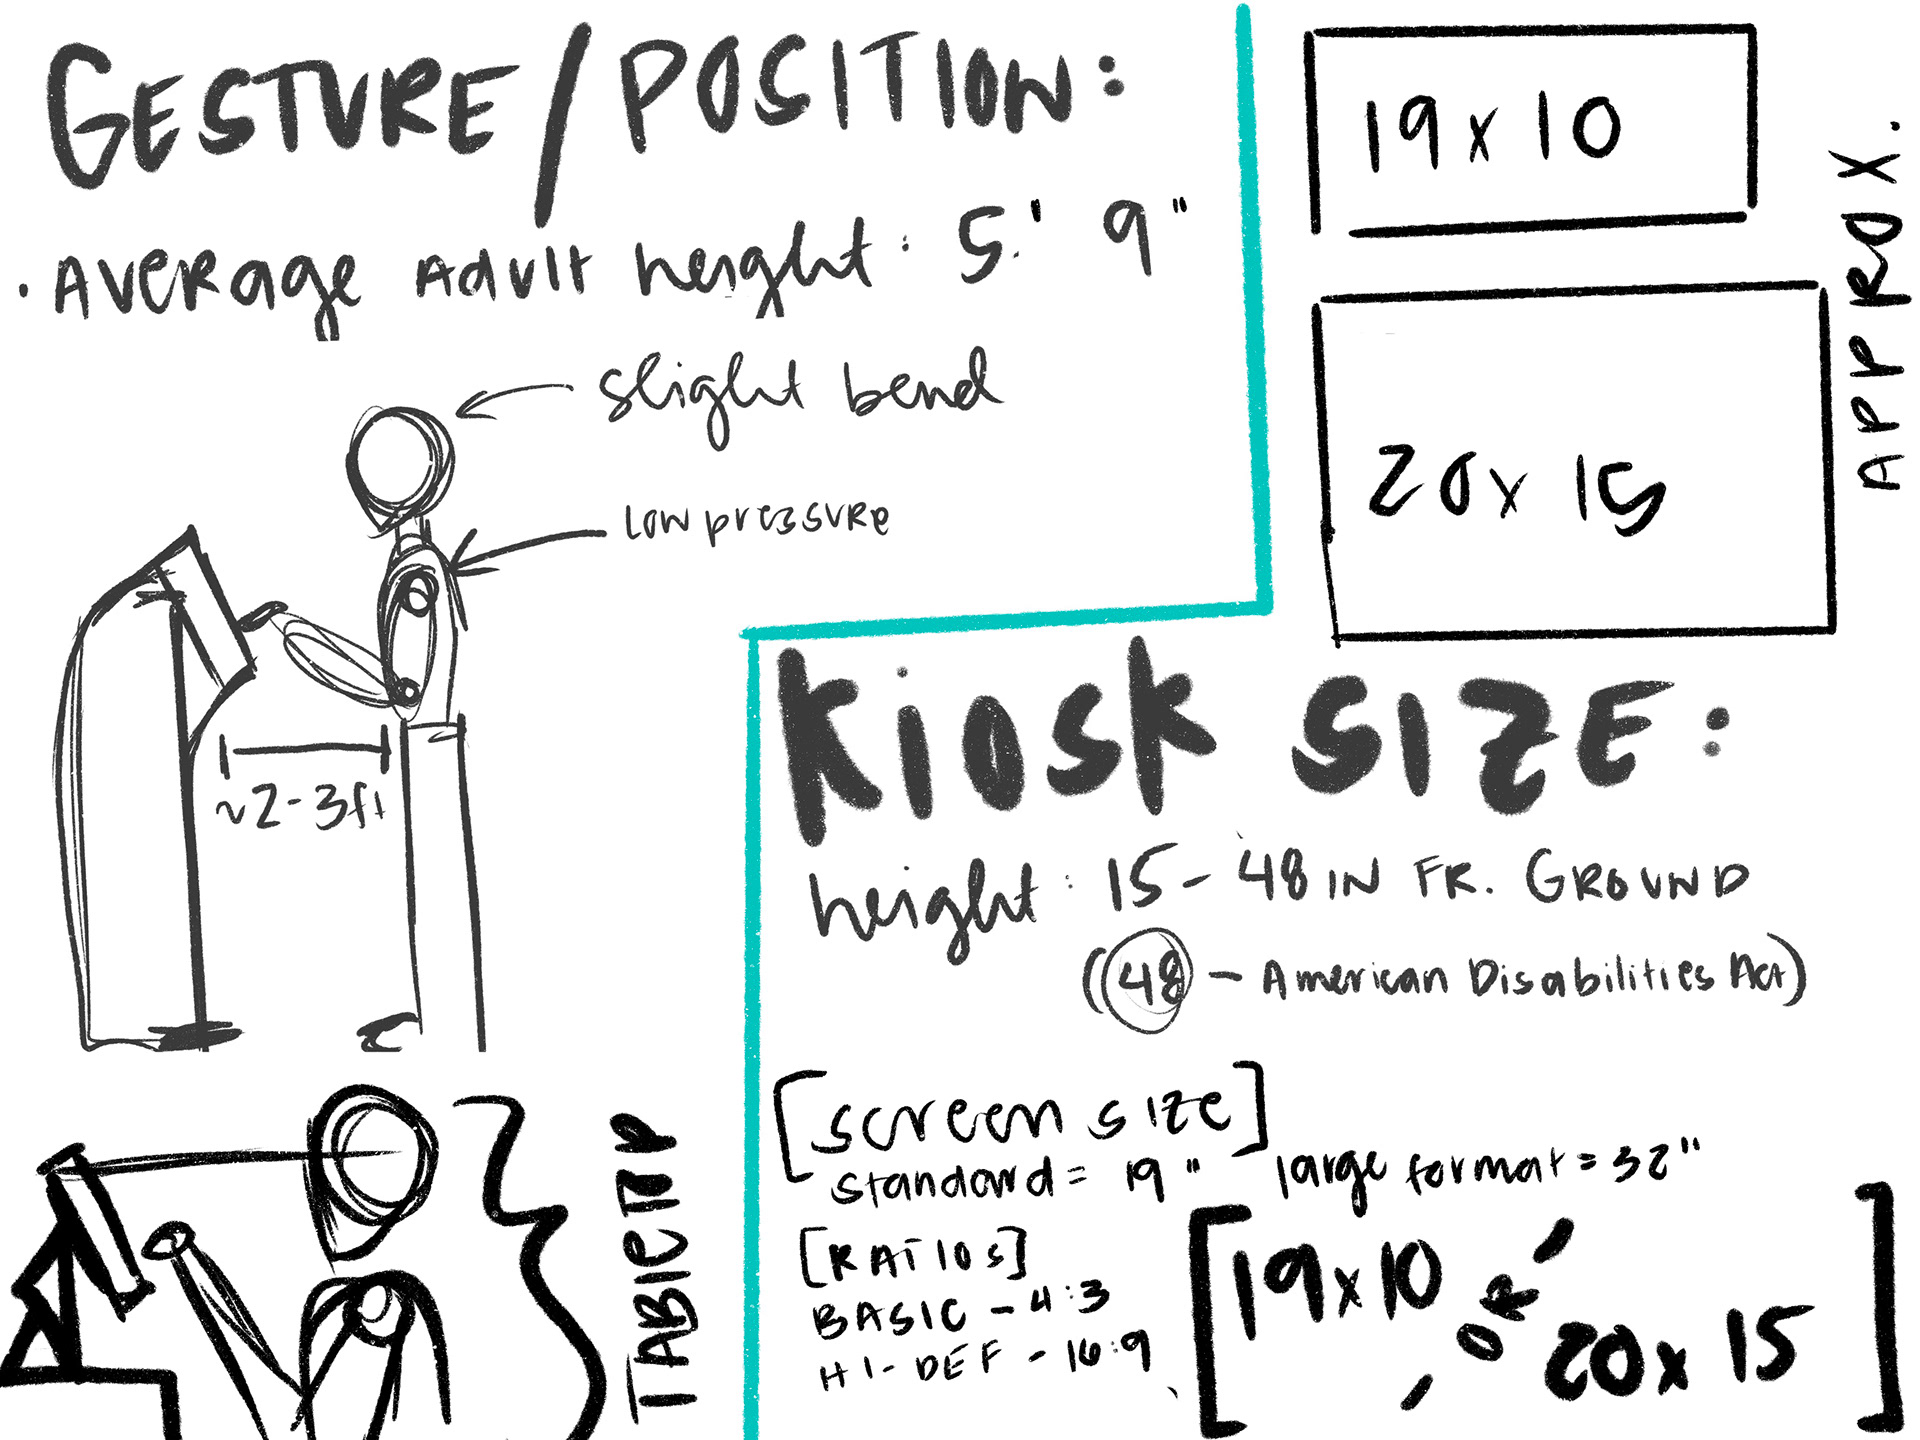 GESTURE/POSITION:
· AVERAGE ADULT height: 5.' 9"
slight bend
low pressure
~2-3ft
TABLETOP
19 x 10
20 x 15
APPROX.
KIOSK SIZE:
height: 15 - 48 IN FR. GROUND
((48) - American Disabilities Act)
[screen size]
standard = 19"
large format = 32"
[RATIOS]
BASIC - 4:3
HI-DEF - 16:9
[19x10
- OR -
20x15]